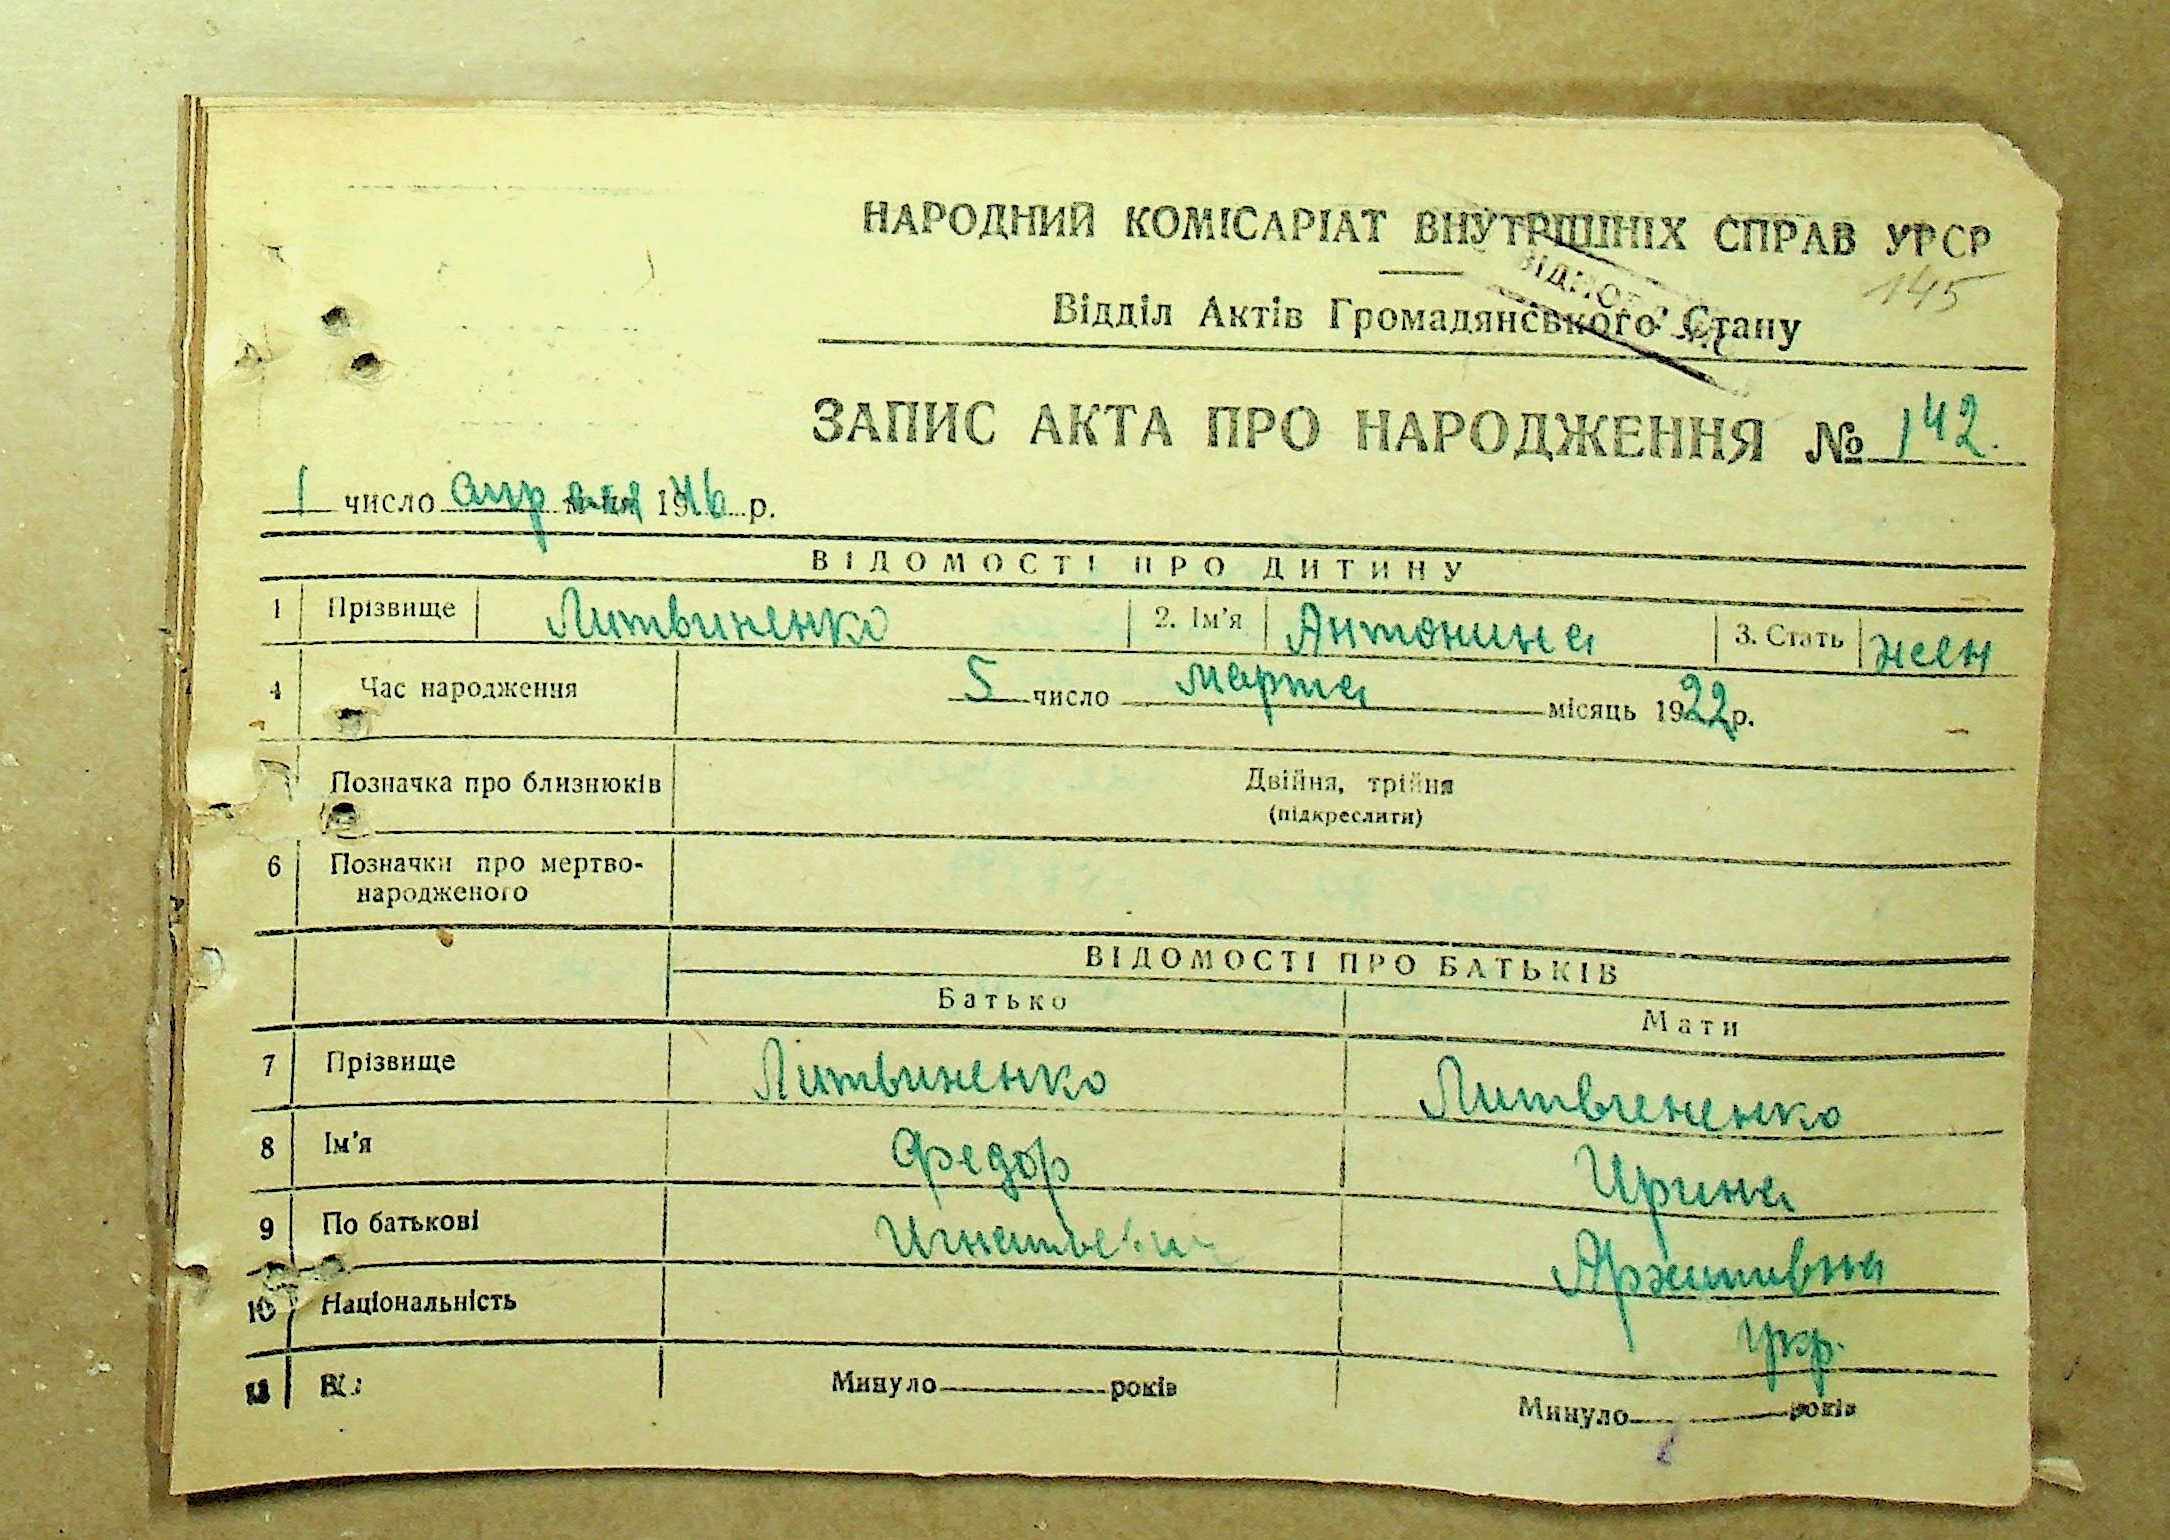 НАРОДНИЙ КОМІСАРІАТ ВНУТРІШНІХ СПРАВ УРСР
145
Відділ Актів Громадянського Стану
ЗАПИС АКТА ПРО НАРОДЖЕННЯ № 142.
1 число апреля 1946 р.
ВІДОМОСТІ ПРО ДИТИНУ
1 Прізвище Литвиненко 2. Ім'я Антонина 3. Стать жен
4 Час народження 5 число марта місяць 1922 р.
Позначка про близнюків Двійня, трійня
(підкреслити)
6 Позначки про мертво-
народженого
ВІДОМОСТІ ПРО БАТЬКІВ
Батько Мати
7 Прізвище Литвиненко Литвиненко
8 Ім'я Федор Ирина
9 По батькові Игнатьевич Архипивна
10 Національність укр.
11 Минуло року років Минуло років